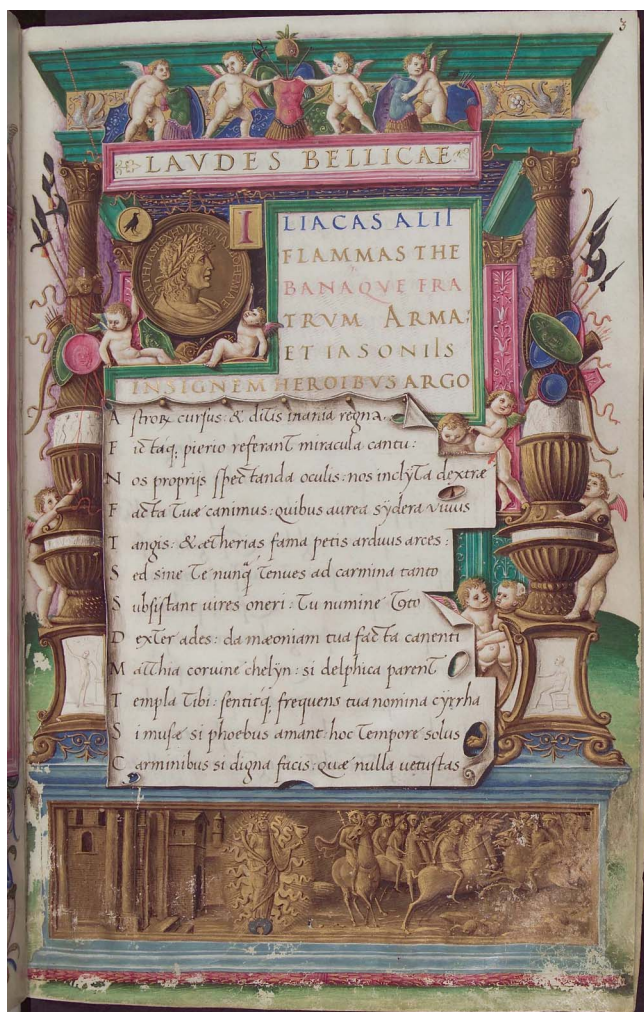 3
LAVDES BELLICAE
MATHIAS REX VNGARIAE BOHEMIAE
ILIACAS ALII
FLAMMAS THE
BANAQVE FRA
TRVM ARMA:
ET IASONIIS
INSIGNEM HEROIBVS ARGO
Astroꝝ cursus: & ditis inania regna.
Fictaq; pierio referant miracula cantu:
Nos proprijs spectanda oculis: nos inclyta dextræ
Facta tuæ canimus: quibus aurea sydera viuus
Tangis: & ætherias fama petis arduus arces:
Sed sine te nunq̃ tenues ad carmina tanto
Subsistant uires oneri: Tu numine toto
Dexter ades: da mæoniam tua facta canenti
Matthia coruine chelÿn: si delphica parent
Templa tibi: sentitq; frequens tua nomina cÿrrha
Si musæ si phoebus amant: hoc tempore solus
Carminibus si digna facis: quæ nulla uetustas